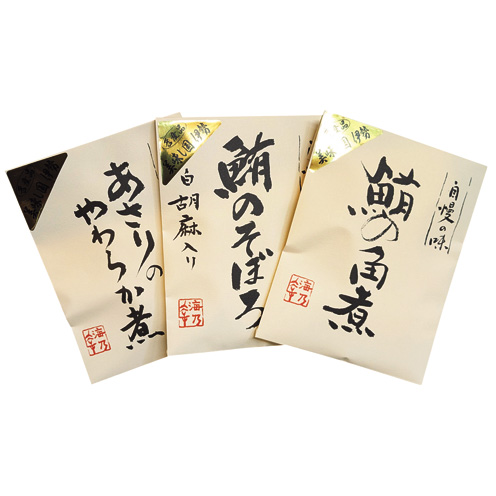 あさりの
やわらか煮
鮪のそぼろ
白胡麻入り
鮪の角煮
自慢の味
海乃幸
海乃幸
海乃幸